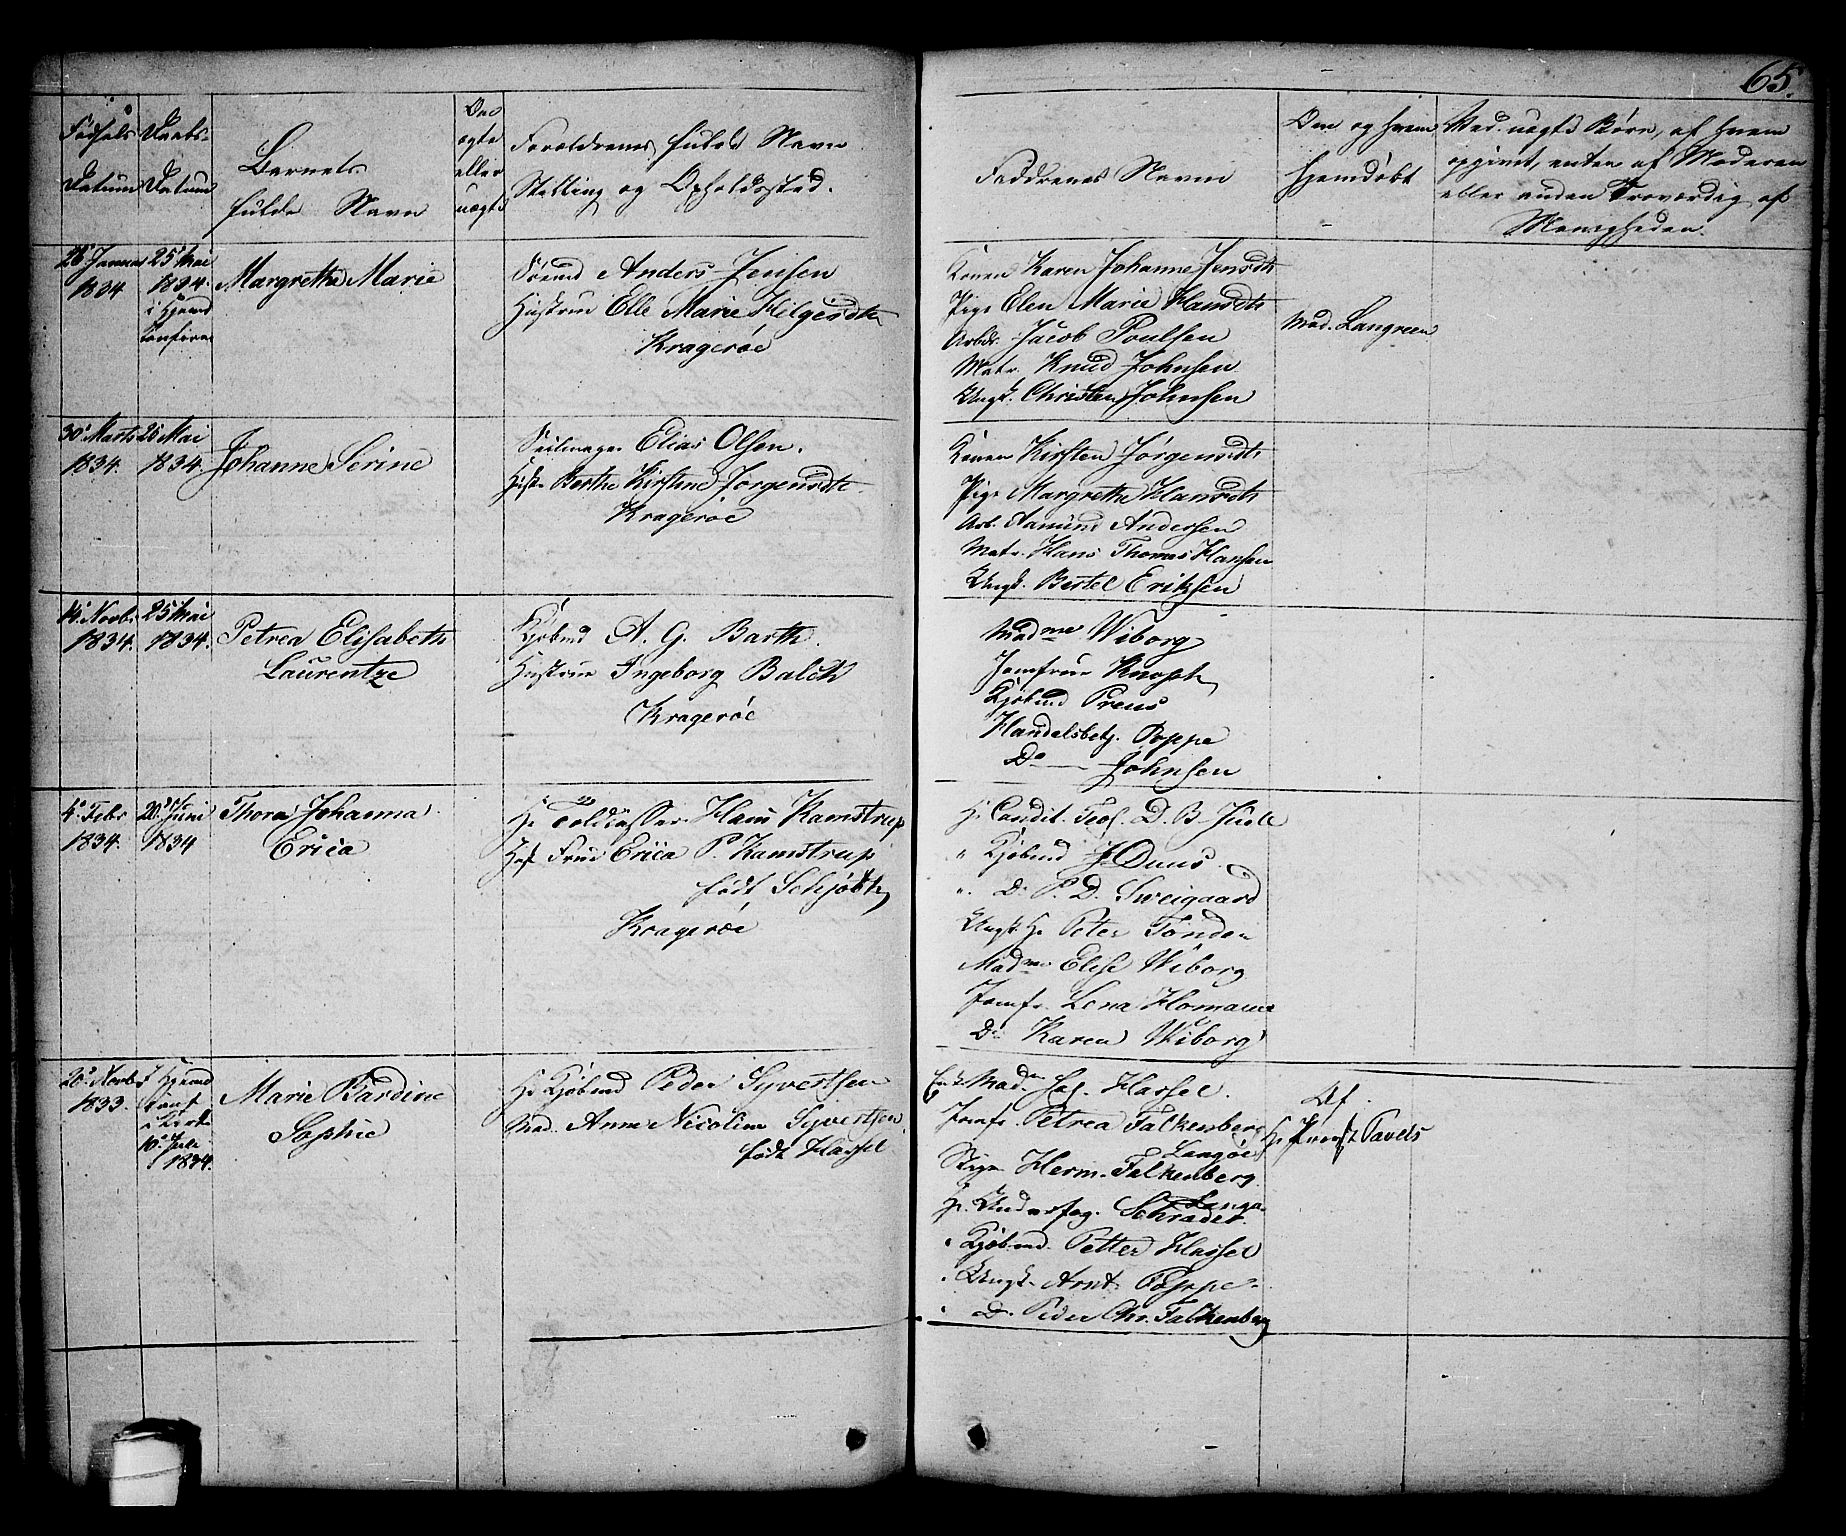 65.
Fødsels
Datum
Daabs-
Datum
Barnets
fulde Navn
Om
ægte
eller
uægte
Forældrenes fulde Navn
Stilling og Opholdssted.
Faddrenes Navne
Om og hvem
hjemdøbt
Ved uægte Børn, af hvem
opgivet, enten af Moderen
eller anden Troværdig af
Menigheden.
28 Januar
1834
25 Mai
1834.
i Hjemd
Margrethe Marie
Anders Jensen
Hustrue Elle Marie
Kragerøe
Konen Karen Johanne Jensdtr
Pige Elen Marie Hansdtr
Arbdr. Jacob Poulsen
Matr. Knud Johnsen
Ungk. Christen Johnsen
Mad. Langreen
30 Marts
1834.
25 Mai
1834.
Johanne Serine
Seilmager Elias Olsen.
Hustr Berthe Kirstine Jørgensdtr
Kragerøe
Konen Kirsten Jørgensdtr
Pige Margrethe Hansdtr
Arb. Aamund Andersen
Matr. Hans Thomas Hansen
Ungk. Bertel Eriksen
14 Novbr
1834.
25 Mai
1834.
Petrea Elisabeth
Laurentze
Kjøbmd A. G. Barth.
Hustrue Ingeborg Balch
Kragerøe
Madme Wiborg
Jomfrue Knoph
Kjøbmd Preus
Handelsbetj. Poppe
Do — Johnsen
4 Febr
1834.
20 Juni
1834
Thora Johanna
Erica
Hr Toldcasserer Hans Kamstrup
Frue Erica P. Kamstrup
født Schjøth
Kragerøe
Hr Candit. Teol. D. B. Juell
" Kjøbmd J Duus
". Do P. D. Sweigaard
Ungk. Hr Peter Tønder
Madme Elise Wiborg
Jomfr. Lena Homann
Do Karen Wiborg
20 Novbr
1833.
Hjemd
10 Juli
1834.
Marie Bardine
Sophie
Hr Kjøbmd Peder Syvertsen
Mad. Anne Nicoline Syvertsen
født Hassel
Mad. Hassel.
Jomfr. Petrea Falkenberg
Langøe
Herm. Falkenberg
Hr. Underfog. Schrader.
" Kjøbmd. Petter Hassel
" Ungk. Arnt Poppe
" Do. Peder Chr. Falkenberg
Af
Hr Provst Pavels